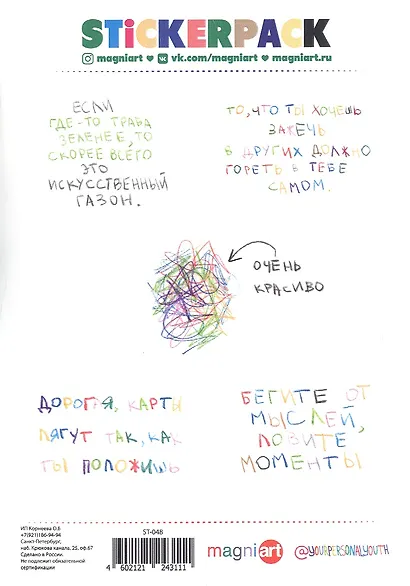 STiCKERPACK
magniart ♥ vk.com/magniart ♥ magniart.ru
ЕСЛИ
ГДЕ-ТО ТРАВА
ЗЕЛЕНЕЕ, ТО
СКОРЕЕ ВСЕГО
ЭТО
ИСКУССТВЕННЫЙ
ГАЗОН.
ТО, ЧТО ТЫ ХОЧЕШЬ
ЗАЖЕЧЬ
В ДРУГИХ ДОЛЖНО
ГОРЕТЬ В ТЕБЕ
САМОМ.
ОЧЕНЬ
КРАСИВО
ДОРОГАЯ, КАРТЫ
ЛЯГУТ ТАК, КАК
ТЫ ПОЛОЖИШЬ
БЕГИТЕ ОТ
МЫСЛЕЙ,
ЛОВИТЕ
МОМЕНТЫ
ИП Корнеева О.В
+7(921)186-94-94
Санкт-Петербург,
наб. Крюкова канала, 25, оф.67
Сделано в России.
Не подлежит обязательной
сертификации
ST-048
4 602121 243111
magniart
@YOURPERSONALYOUTH